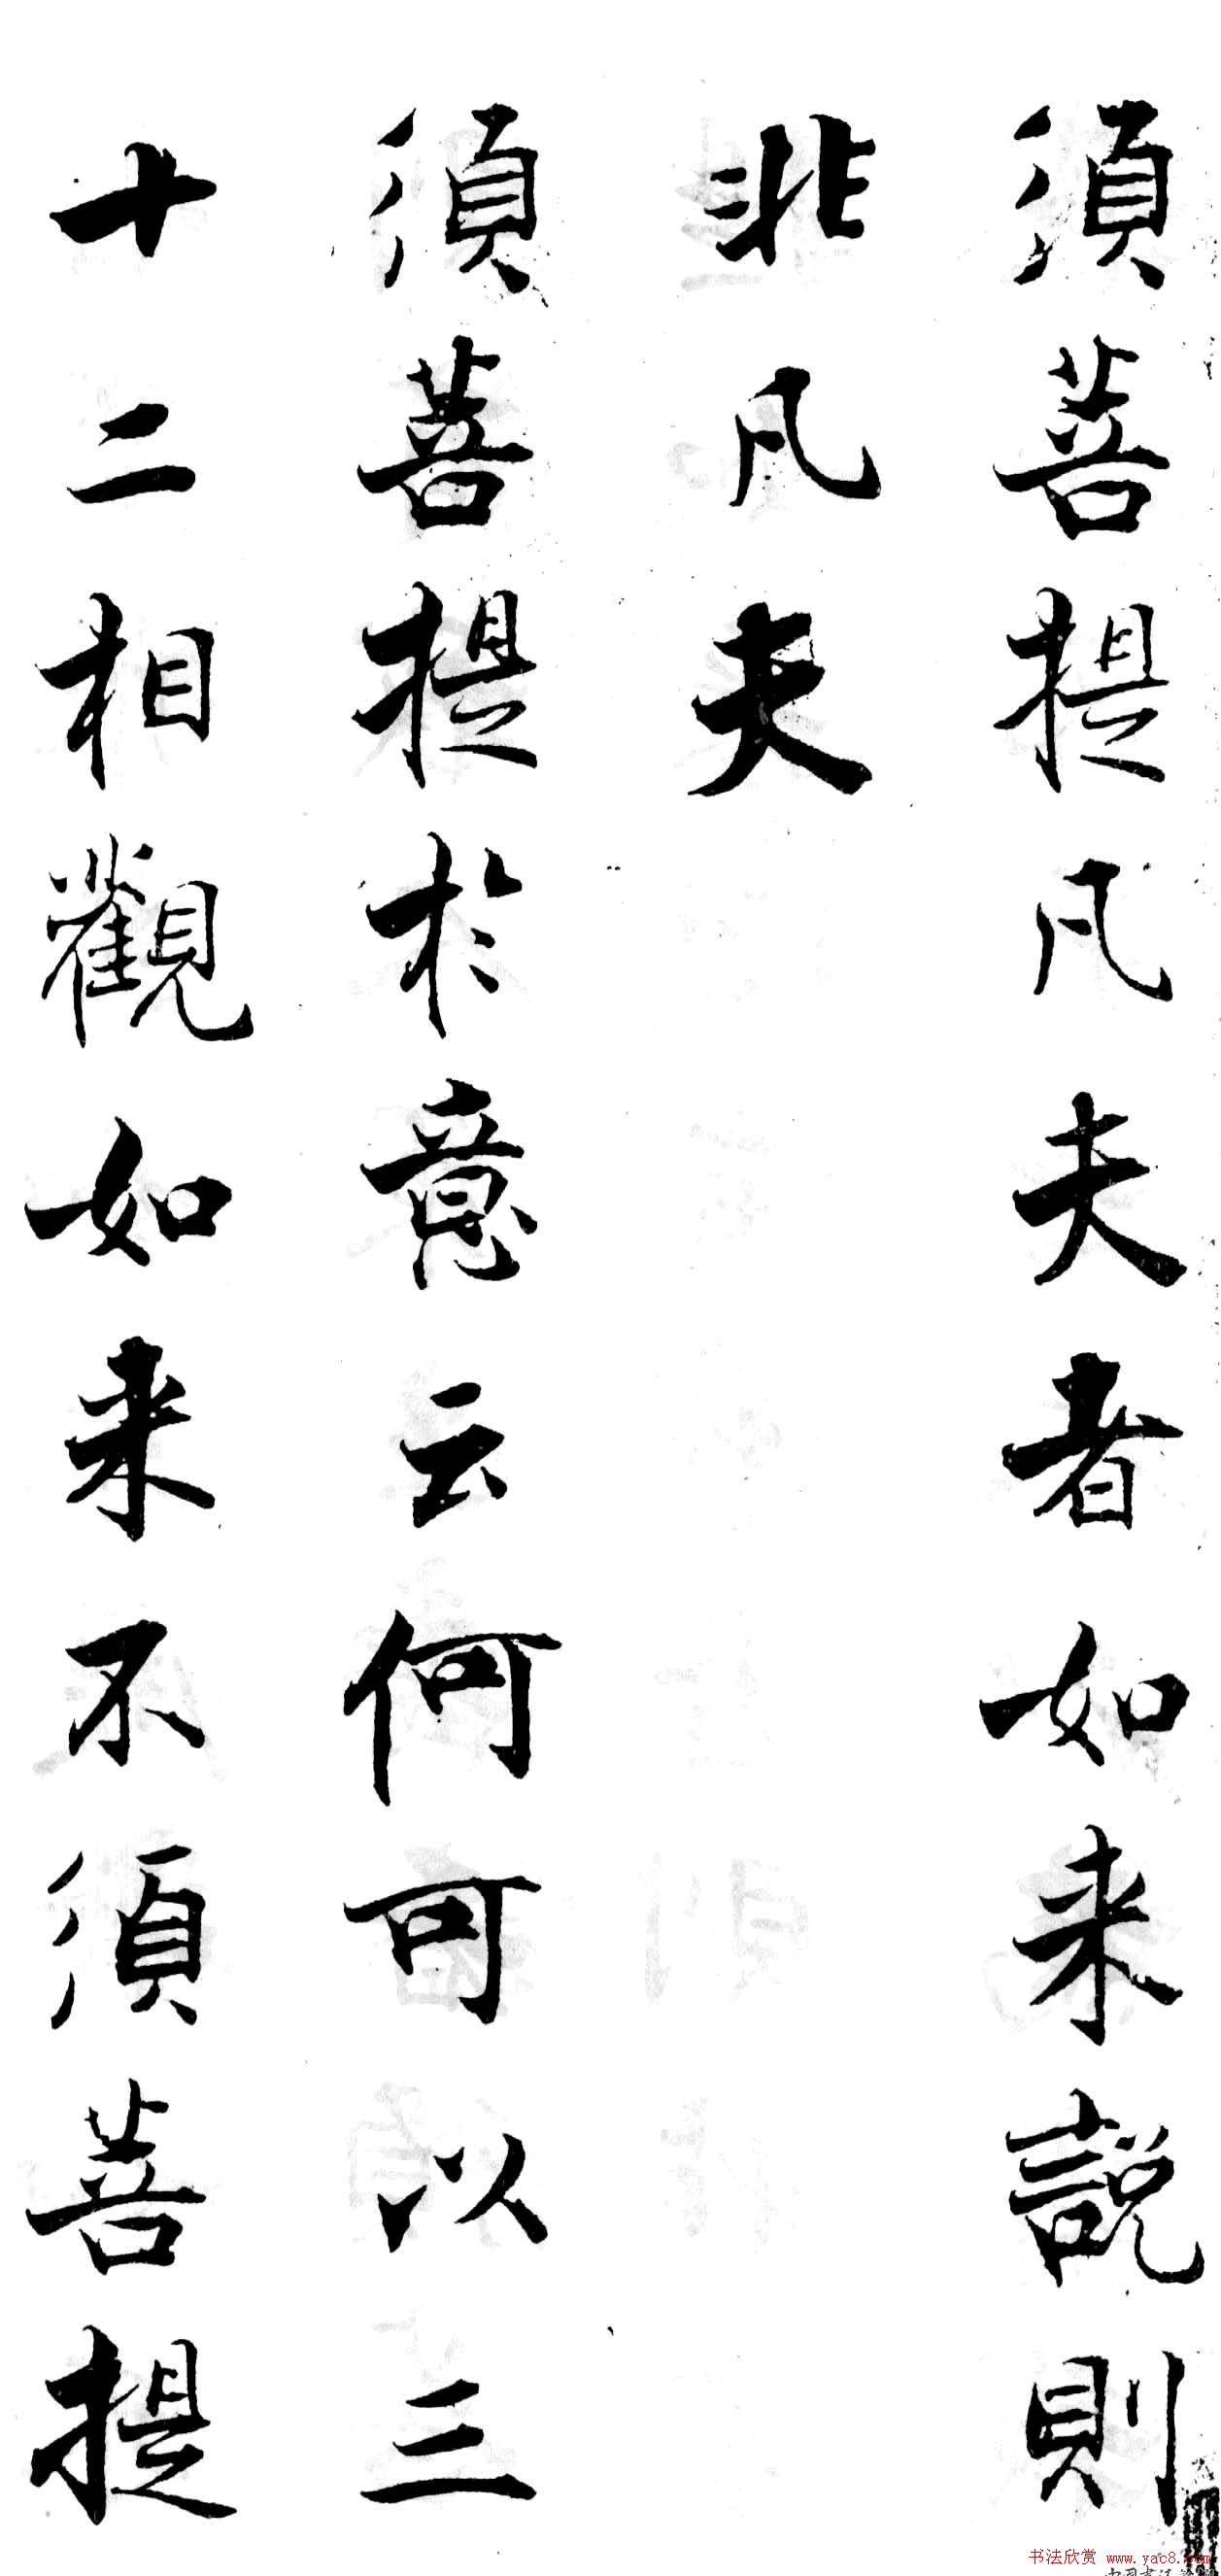 須菩提凡夫者如来説則
非凡夫
須菩提於意云何可以三
十二相觀如来不須菩提
书法欣赏 www.yac8.com